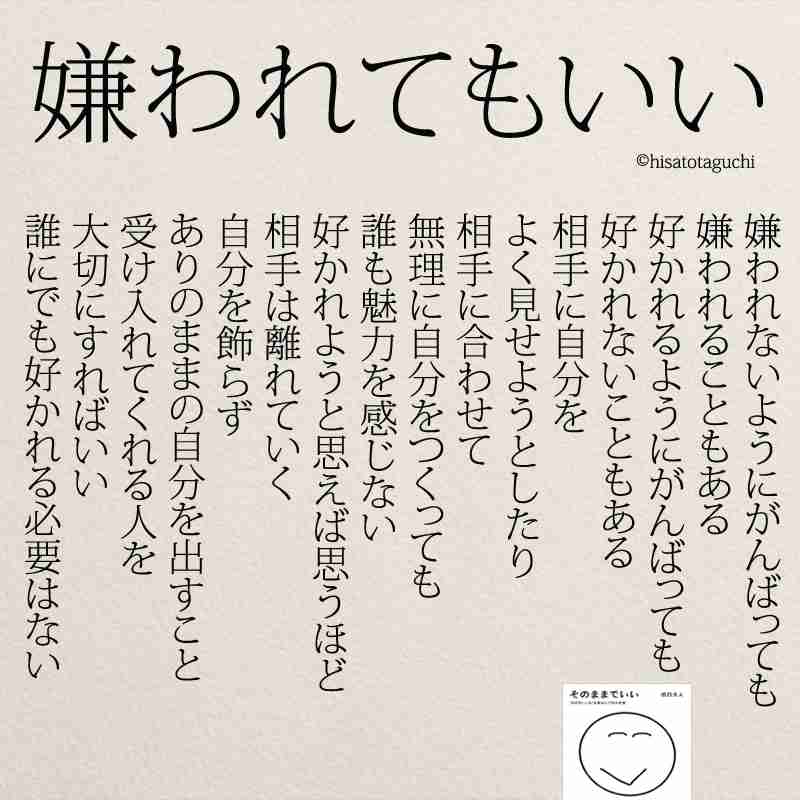 嫌われてもいい
©hisatotaguchi
嫌われないようにがんばっても
嫌われることもある
好かれるようにがんばっても
好かれないこともある
相手に自分を
よく見せようとしたり
相手に合わせて
無理に自分をつくっても
誰も魅力を感じない
好かれようと思えば思うほど
相手は離れていく
自分を飾らず
ありのままの自分を出すこと
受け入れてくれる人を
大切にすればいい
誰にでも好かれる必要はない
そのままでいい